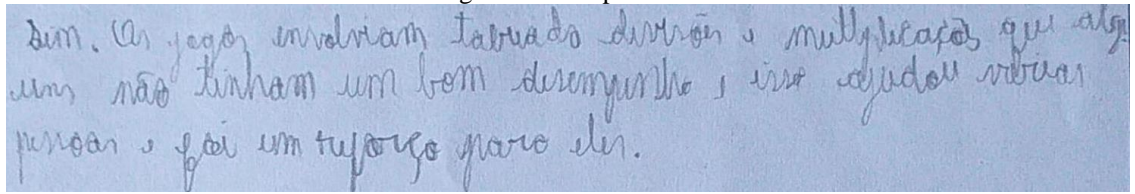 Sim. Os jogos envolviam tabuada divisões e multiplicações que alg-
uns não tinham um bom desempenho, isso ajudou várias
pessoas e foi um reforço para eles.